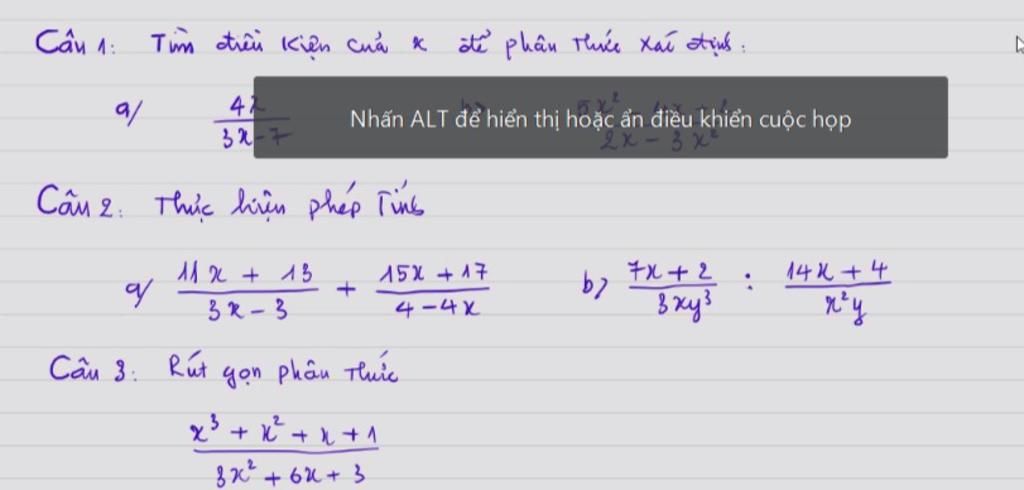 Câu 1: Tìm điều kiện của x để phân thức xác định:
a/ 4x / 3x-7
Nhấn ALT để hiển thị hoặc ẩn điều khiển cuộc họp
2x - 3x²
Câu 2: Thực hiện phép Tính
a/ 11x + 13 / 3x - 3 + 15x + 17 / 4 - 4x b/ 7x + 2 / 3xy³ : 14x + 4 / x²y
Câu 3: Rút gọn phân thức
x³ + x² + x + 1 / 3x² + 6x + 3